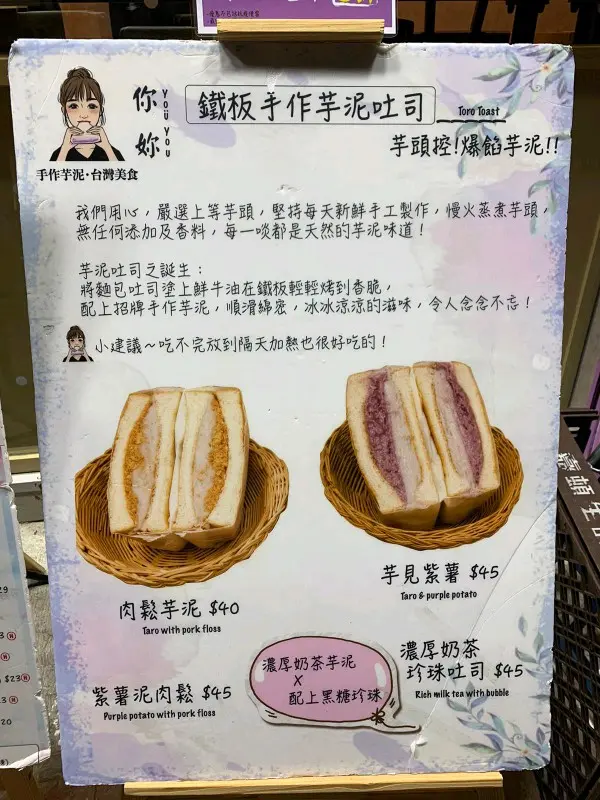 你
妳
YOU YOU
手作芋泥·台灣美食
鐵板手作芋泥吐司
Toro Toast
芋頭控!爆餡芋泥!!
我們用心，嚴選上等芋頭，堅持每天新鮮手工製作，慢火蒸煮芋頭，
無任何添加及香料，每一啖都是天然的芋泥味道！
芋泥吐司之誕生：
將麵包吐司塗上鮮牛油在鐵板輕輕烤到香脆，
配上招牌手作芋泥，順滑綿密，冰冰涼涼的滋味，令人念念不忘！
小建議～吃不完放到隔天加熱也很好吃的！
肉鬆芋泥 $40
Taro with pork floss
芋見紫薯 $45
Taro & purple potato
紫薯泥肉鬆 $45
Purple potato with pork floss
濃厚奶茶芋泥
X
配上黑糖珍珠
濃厚奶茶
珍珠吐司 $45
Rich milk tea with bubble
$23
20